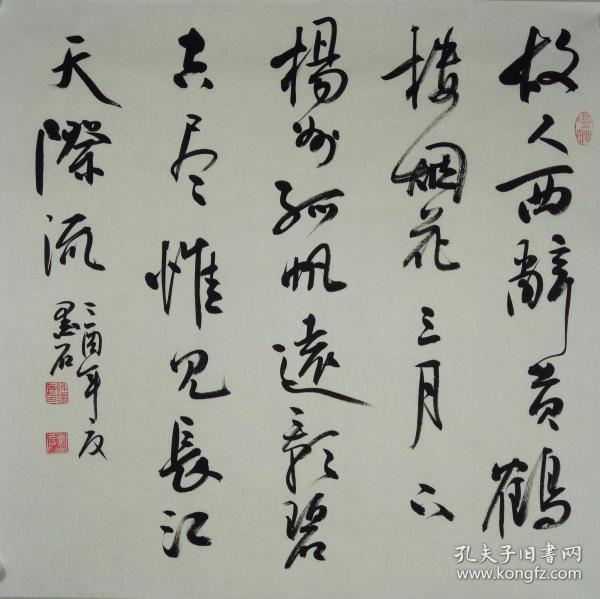 故人西辭黄鶴
楼烟花三月下
楊州孤帆遠影碧
空尽惟见長江
天際流
乙酉年夏
墨石
孔夫子旧书网
www.kongfz.com